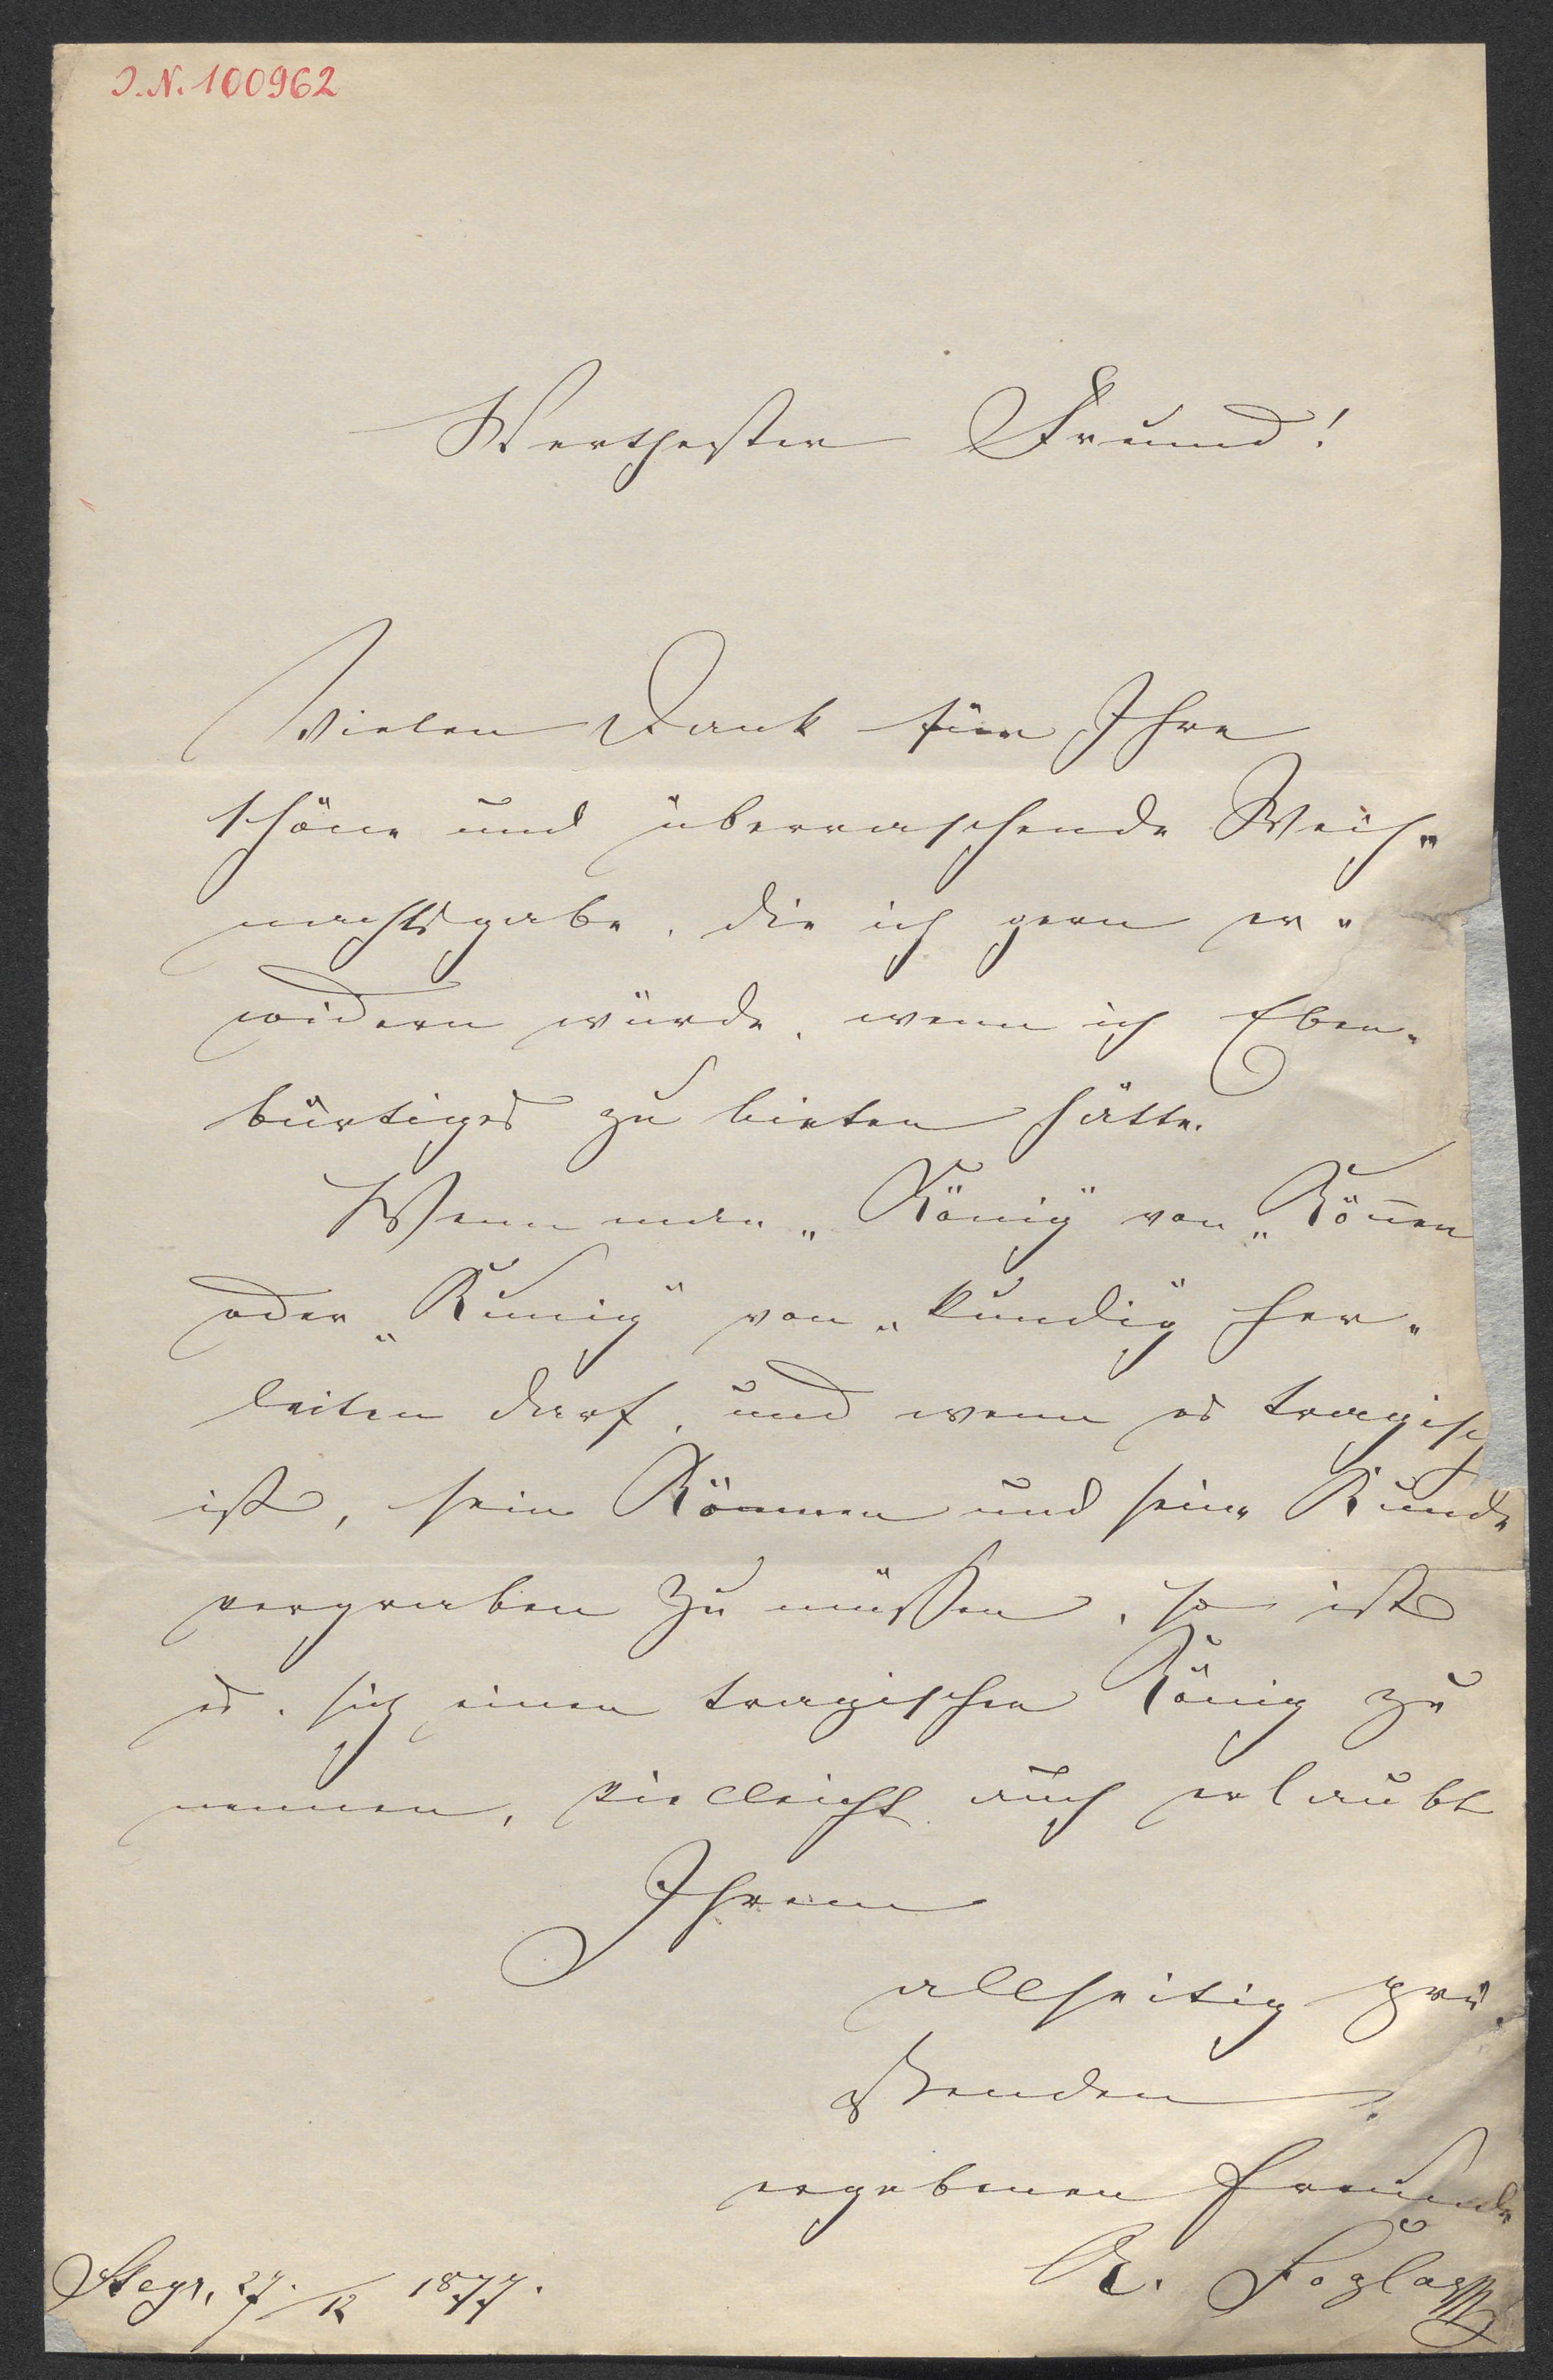 I. N. 100962
Werthester Freund!
Vielen Dank für Ihre
schöne und überraschende Weih-
nachtsgabe, die ich gern er-
widern würde, wenn ich Eben-
bürtiges zu bieten hätte.
Wenn man „König“ von „Köñen
oder „Kunig“ von „kundig“ her-
leiten darf, und wenn es tragisch
ist, sein Können und seine Kunde
vergraben zu müssen, so ist
es, sich einen tragischen König zu
nennen, vielleicht auch erlaubt
Ihrem
allseitig grü-
ßenden,
ergebenen Freunde
A. Foglar
Steyr, 27./12 1877.